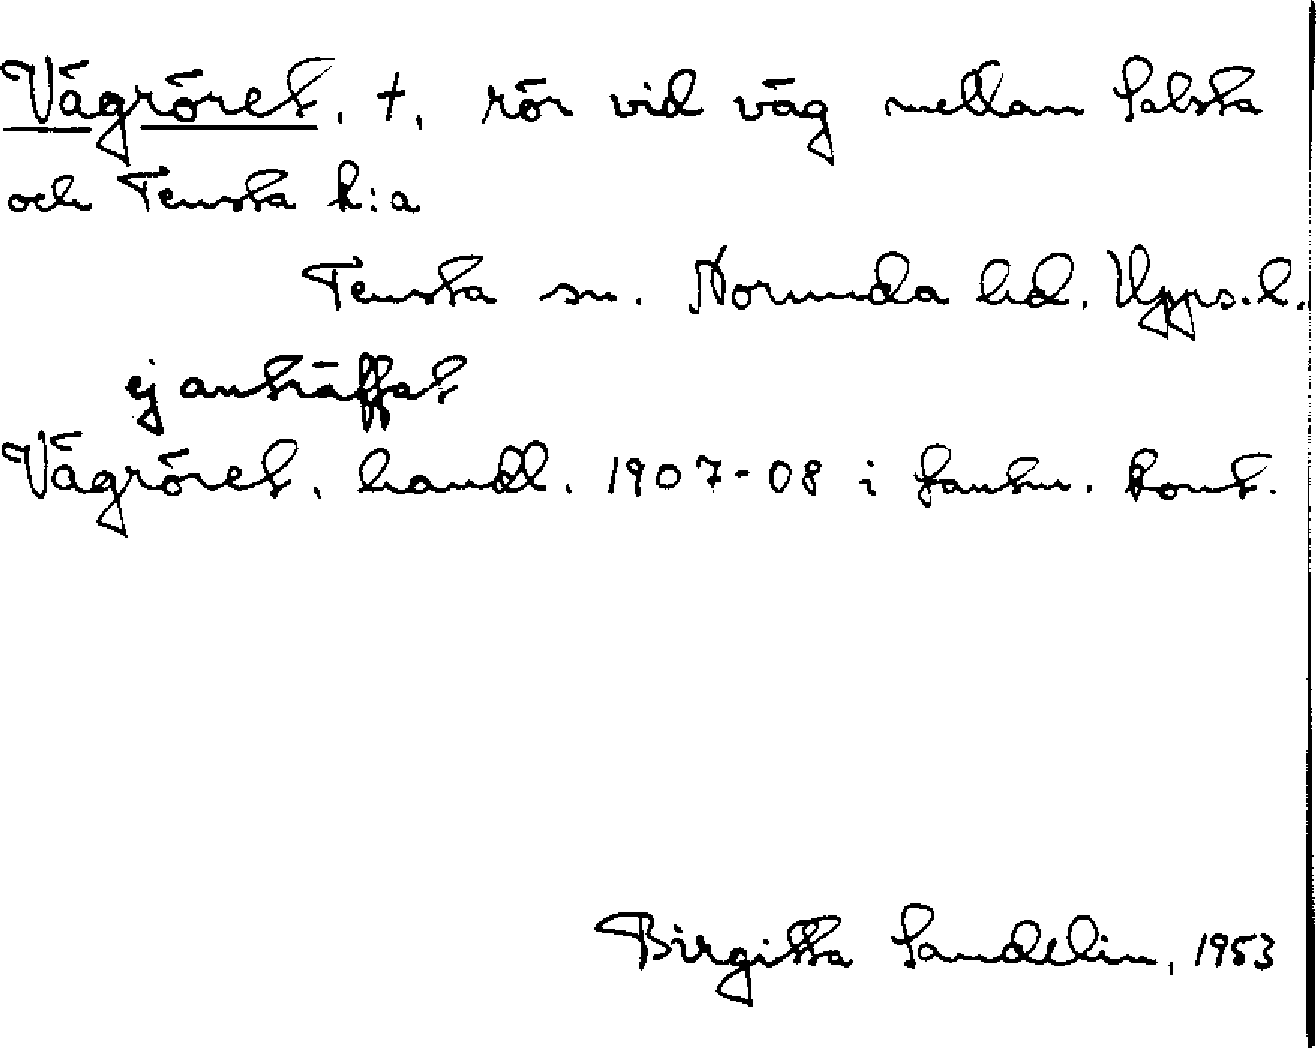 Vägröret, †, rör vid väg mellan Salsta
och Tensta k:a
Tensta sn. Norunda hd. Upps. l.
ej anträffat
Vägröret, handl. 1907-08 i lantm. kont.
Birgitta Sandelin, 1953